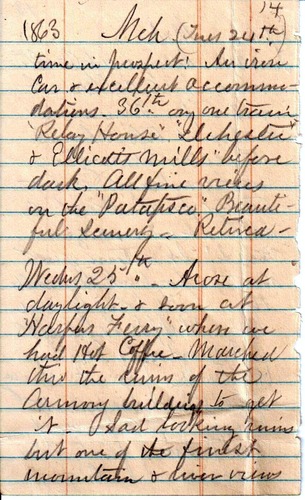 14
1863 Mch. (Tues 24th)
time in prospect! An iron
Car & excellent accommo-
dations. 36th on one train
"Relay House" "Ilchester"
& Ellicott Mills" before
dark, All fine views
on the "Patapsco" Beauti-
ful Scenery - Retired -
Wednes 25th. Arose at
daylight & soon at
"Harpers Ferry" where we
had Hot Coffee - Marched
thro the ruins of the
Armory buildings to get
it - Sad looking ruins
but one of the finest
mountain & river views